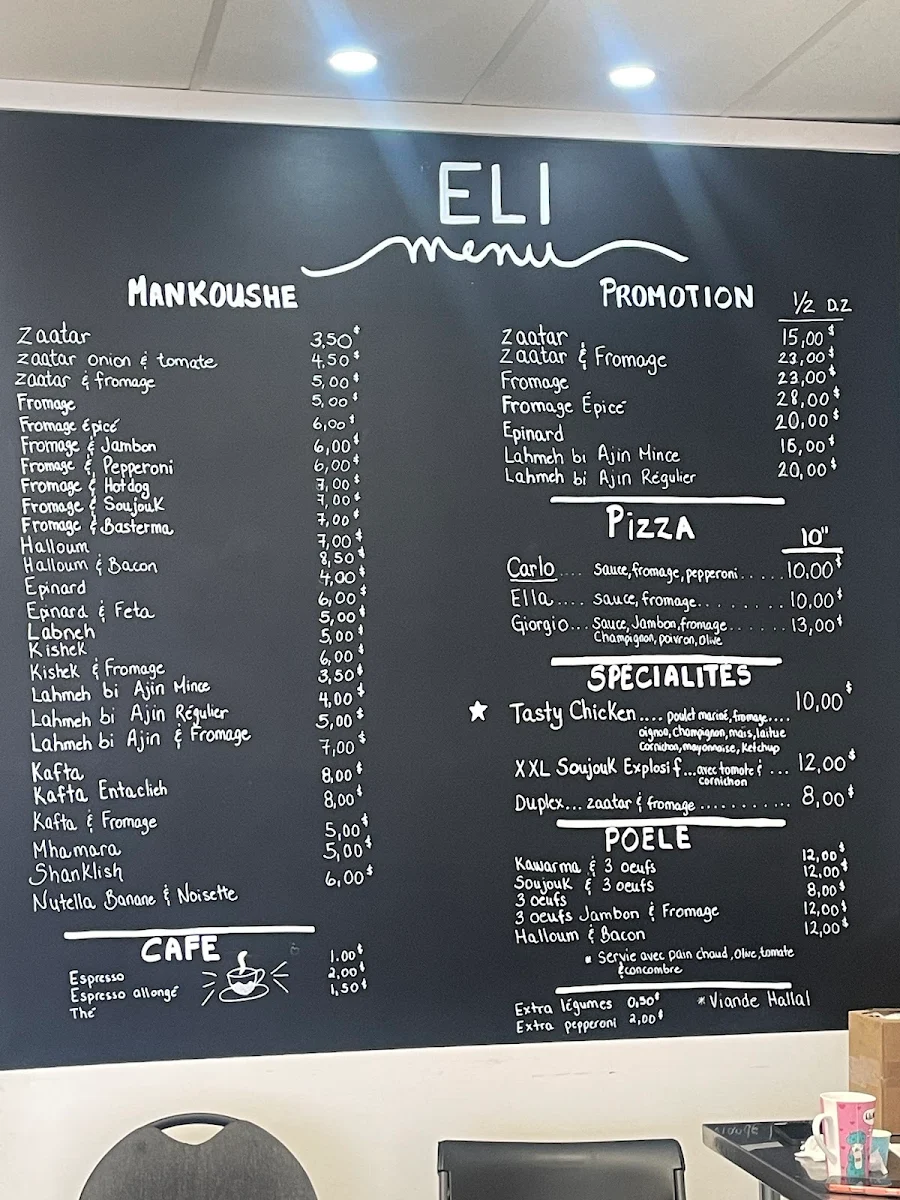 ELI
menu
MANKOUSHE
Zaatar 3,50$
zaatar onion & tomate 4,50$
zaatar & fromage 5,00$
Fromage 5,00$
Fromage épicé 6,00$
Fromage & Jambon 6,00$
Fromage & Pepperoni 6,00$
Fromage & Hotdog 7,00$
Fromage & Soujouk 7,00$
Fromage & Basterma 7,00$
Halloum 7,00$
Halloum & Bacon 8,50$
Epinard 4,00$
Epinard & Feta 6,00$
Labneh 5,00$
Kishek 5,00$
Kishek & Fromage 6,00$
Lahmeh bi Ajin Mince 3,50$
Lahmeh bi Ajin Régulier 4,00$
Lahmeh bi Ajin & Fromage 5,00$
Kafta 7,00$
Kafta Entaclieh 8,00$
Kafta & Fromage 8,00$
Mhamara 5,00$
Shanklish 5,00$
Nutella Banane & Noisette 6,00$
CAFE
Espresso 1.00$
Espresso allongé 2,00$
Thé 1,50$
PROMOTION 1/2 D.Z
Zaatar 15,00$
Zaatar & Fromage 23,00$
Fromage 23,00$
Fromage Épicé 28,00$
Epinard 20,00$
Lahmeh bi Ajin Mince 16,00$
Lahmeh bi Ajin Régulier 20,00$
PIZZA 10"
Carlo .... sauce, fromage, pepperoni ..... 10,00$
Ella .... sauce, fromage ........ 10,00$
Giorgio ... Sauce, Jambon, fromage ........ 13,00$
Champignon, poivron, Olive
SPÉCIALITÉS
Tasty Chicken .... poulet mariné, fromage .... 10,00$
oignon, Champignon, mais, laitue
Cornichon, mayonnaise, Ketchup
XXL Soujouk Explosif ... avec tomate & ... 12,00$
cornichon
Duplex ... zaatar & fromage .......... 8,00$
POÊLE
Kawarma & 3 oeufs 12,00$
Soujouk & 3 oeufs 12,00$
3 oeufs 8,00$
3 oeufs Jambon & Fromage 12,00$
Halloum & Bacon 12,00$
* Servie avec pain chaud, Olive, tomate
& concombre
Extra légumes 0,50$ * Viande Hallal
Extra pepperoni 2,00$